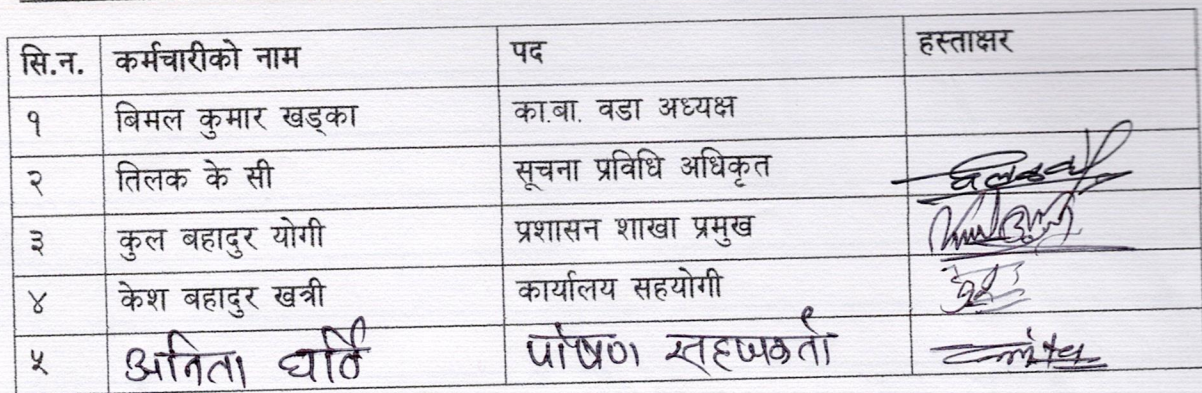 सि.न. कर्मचारीको नाम पद हस्ताक्षर
१ बिमल कुमार खड्का का.बा. वडा अध्यक्ष
२ तिलक के सी सूचना प्रविधि अधिकृत
३ कुल बहादुर योगी प्रशासन शाखा प्रमुख
४ केश बहादुर खत्री कार्यालय सहयोगी
५ अनिता घर्ति पोषण सहजकर्ता